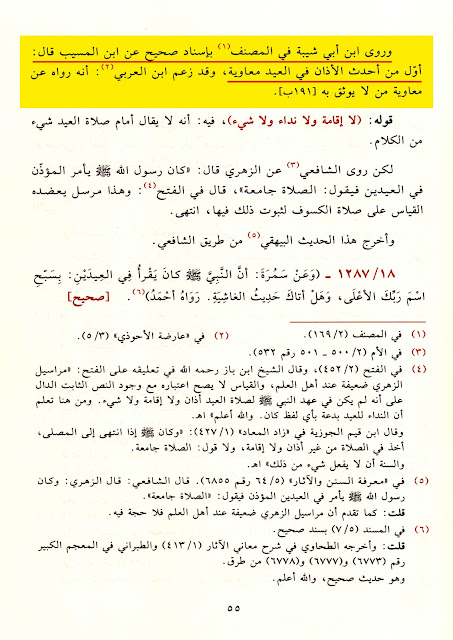 وروى ابن أبي شيبة في المصنف(١) بإسناد صحيح عن ابن المسيب قال:
أوّل من أحدث الأذان في العيد معاوية، وقد زعم ابن العربي(٢): أنه رواه عن
معاوية من لا يوثق به [١٩١ب].
قوله: (لا إقامة ولا نداء ولا شيء)، فيه: أنه لا يقال أمام صلاة العيد شيء
من الكلام.
لكن روى الشافعي(٣) عن الزهري قال: «كان رسول الله ﷺ يأمر المؤذّن
في العيدين فيقول: الصلاة جامعة»، قال في الفتح(٤): وهذا مرسل يعضده
القياس على صلاة الكسوف لثبوت ذلك فيها، انتهى.
وأخرج هذا الحديث البيهقي(٥) من طريق الشافعي.
١٢٨٧/١٨ ـ (وَعَنْ سَمُرَةَ: أنَّ النَّبِيَّ ﷺ كانَ يَقْرأُ فِي العِيدَيْنِ: بِسَبِّحِ
اسْمَ رَبِّكَ الأعْلَى، وَهَلْ أتاكَ حَدِيثُ الغاشِيَةِ. رَوَاهُ أحْمَدُ)(٦). [صحيح]
(١) في المصنف (١٦٩/٢). (٢) في «عارضة الأحوذي» (٥/٣).
(٣) في الأم (٥٠٠/٢ ـ ٥٠١ رقم ٥٣٢).
(٤) في الفتح (٤٥٢/٢)، وقال الشيخ ابن باز رحمه الله في تعليقه على الفتح: «مراسيل
الزهري ضعيفة عند أهل العلم، والقياس لا يصح اعتباره مع وجود النص الثابت الدال
على أنه لم يكن في عهد النبي ﷺ لصلاة العيد أذان ولا إقامة ولا شيء. ومن هنا تعلم
أن النداء للعيد بدعة بأي لفظ كان. والله أعلم» اهـ.
وقال ابن قيم الجوزية في «زاد المعاد» (٤٢٧/١): «وكان ﷺ إذا انتهى إلى المصلى،
أخذ في الصلاة من غير أذان ولا إقامة، ولا قول: الصلاة جامعة.
والسنة أن لا يفعل شيء من ذلك» اهـ.
(٥) في «معرفة السنن والآثار» (٦٤/٥ رقم ٦٨٥٥). قال الشافعي: قال الزهري: وكان
رسول الله ﷺ يأمر في العيدين المؤذن فيقول: «الصلاة جامعة».
قلت: كما تقدم أن مراسيل الزهري ضعيفة عند أهل العلم فلا حجة فيه.
(٦) في المسند (٧/٥) بسند صحيح.
قلت: وأخرجه الطحاوي في شرح معاني الآثار (٤١٣/١) والطبراني في المعجم الكبير
رقم (٦٧٧٣) و(٦٧٧٧) و(٦٧٧٨) من طرق.
وهو حديث صحيح، والله أعلم.
٥٥